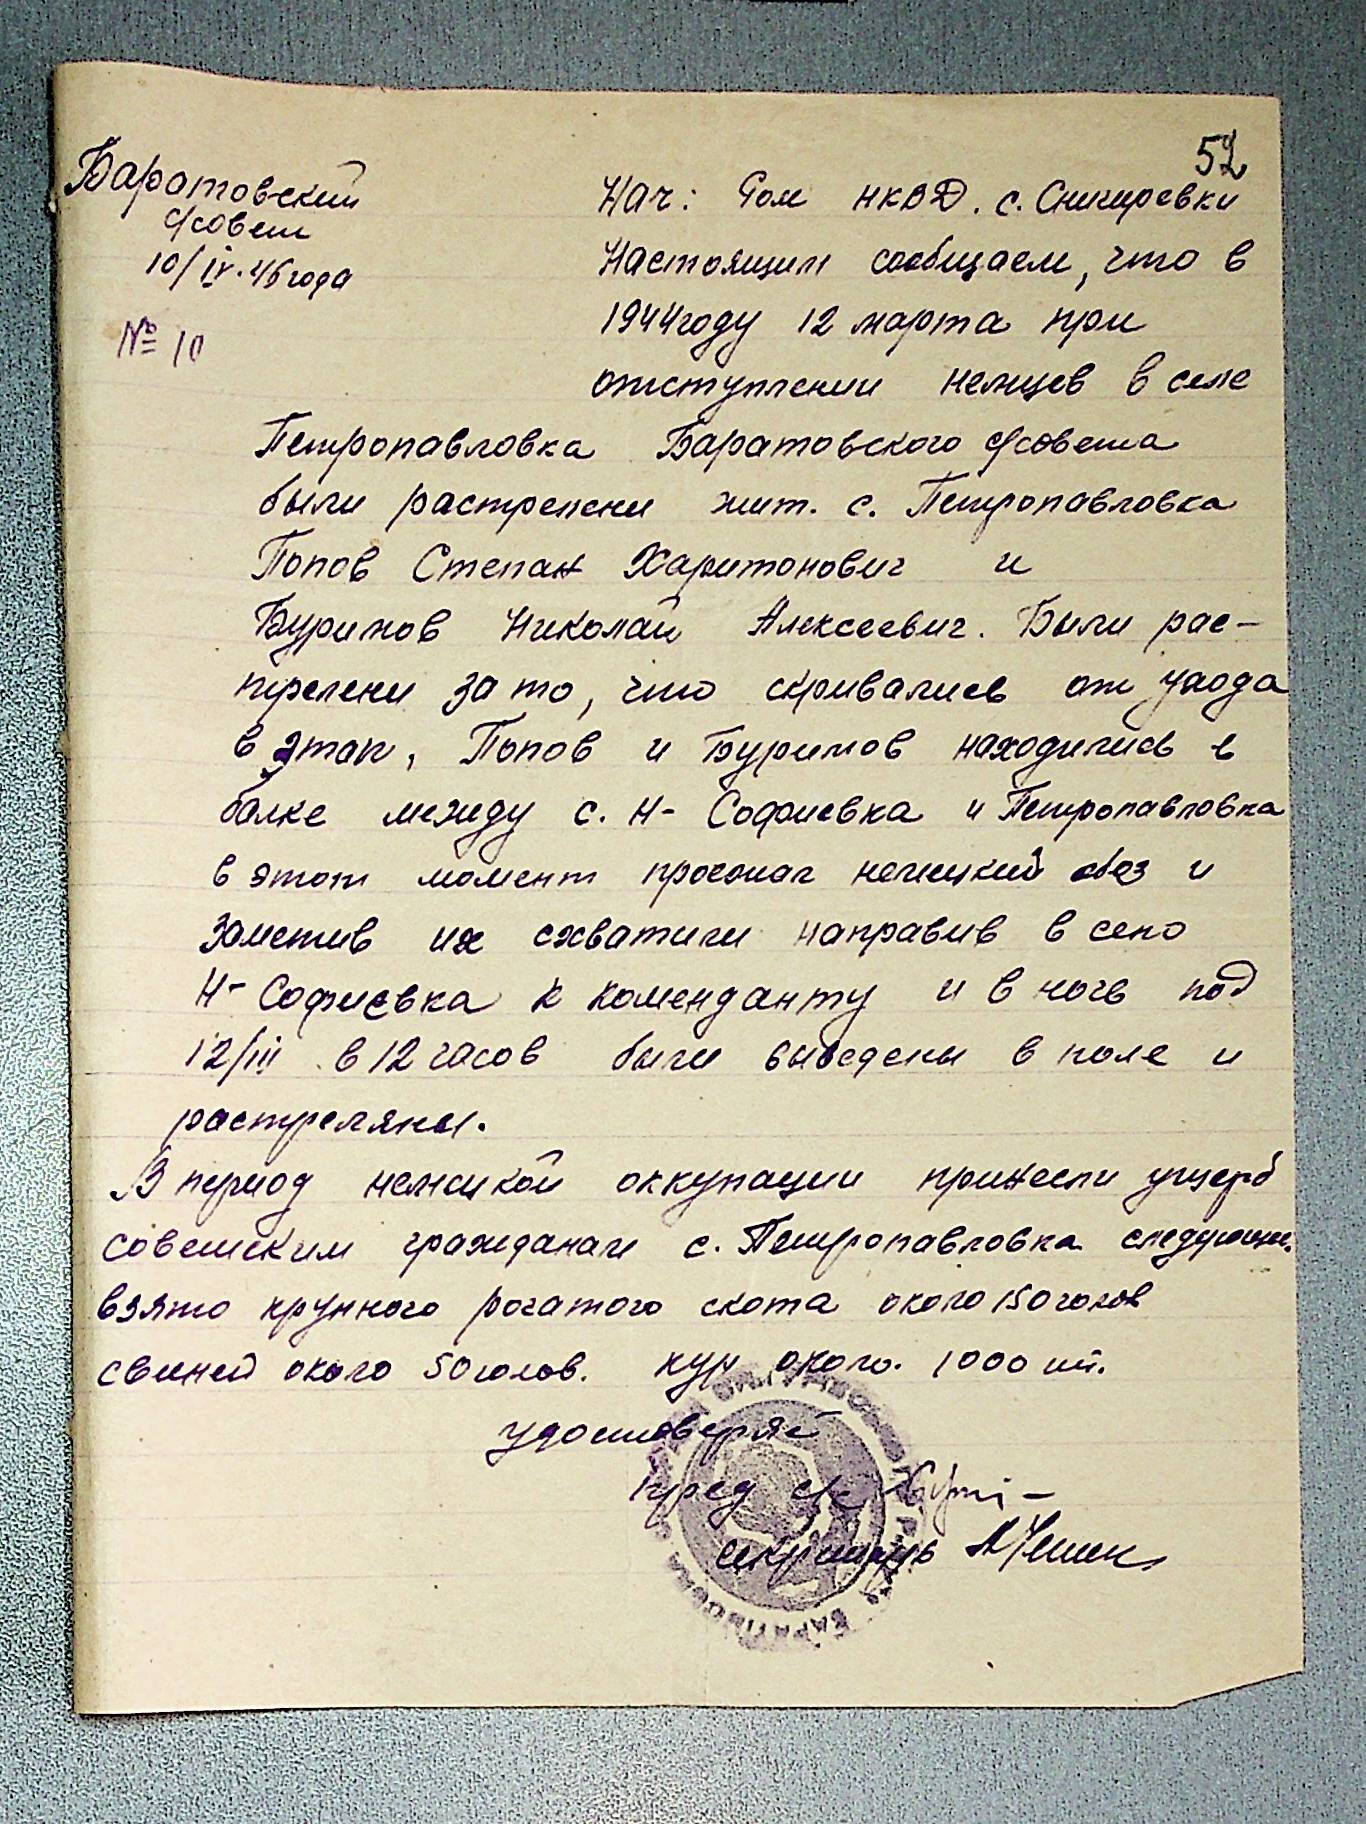 52
Баратовский
с/совет
10/IV.46 года
№ 10
Нач: Ром НКВД. с. Снигиревки
Настоящим сообщаем, что в
1944 году 12 марта при
отступлении немцев в селе
Петропавловка Баратовского с/совета
были растрелени жит. с. Петропавловка
Попов Степан Харитонович и
Буримов Николай Алексеевич. Были рас-
трелени за то, что скривались от угода
в этап, Попов и Буримов находились в
балке между с. Н-Софиевка и Петропавловка
в этот момент проезжал немецкий обоз и
заметив их схватили направив в село
Н-Софиевка к коменданту и в ночь под
12/III в 12 часов были выведены в поле и
растреляны.
В период немецкой оккупации принесли ущерб
советским гражданам с. Петропавловка следующие.
взято крупного рогатого скота около 150 голов
свиней около 50 голов. кур около. 1000 шт.
удостоверяе
Пред с/с
секретарь